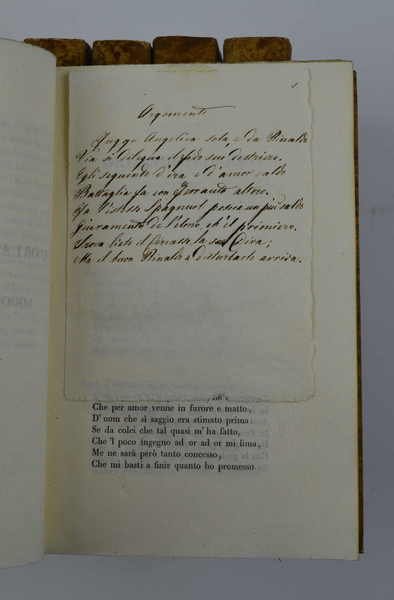 Argomento
Fugge Angelica sola, e da Rinaldo
Via si dilegua il fido suo destriero.
Egli seguendo d'ira e d'amor caldo
Battaglia fa con Ferraù altero.
Fa l'istesso Spagnuol poscia un più saldo
Giuramento de l'elmo, ch'il primiero.
Trova lieto il Circasso la sua Diva;
Ma il buon Rinaldo a disturbarlo arriva.
Che per amor venne in furore e matto,
D' uom che sì saggio era stimato prima:
Se da colei che tal quasi m' ha fatto,
Che 'l poco ingegno ad or ad or mi lima,
Me ne sarà però tanto concesso,
Che mi basti a finir quanto ho promesso.